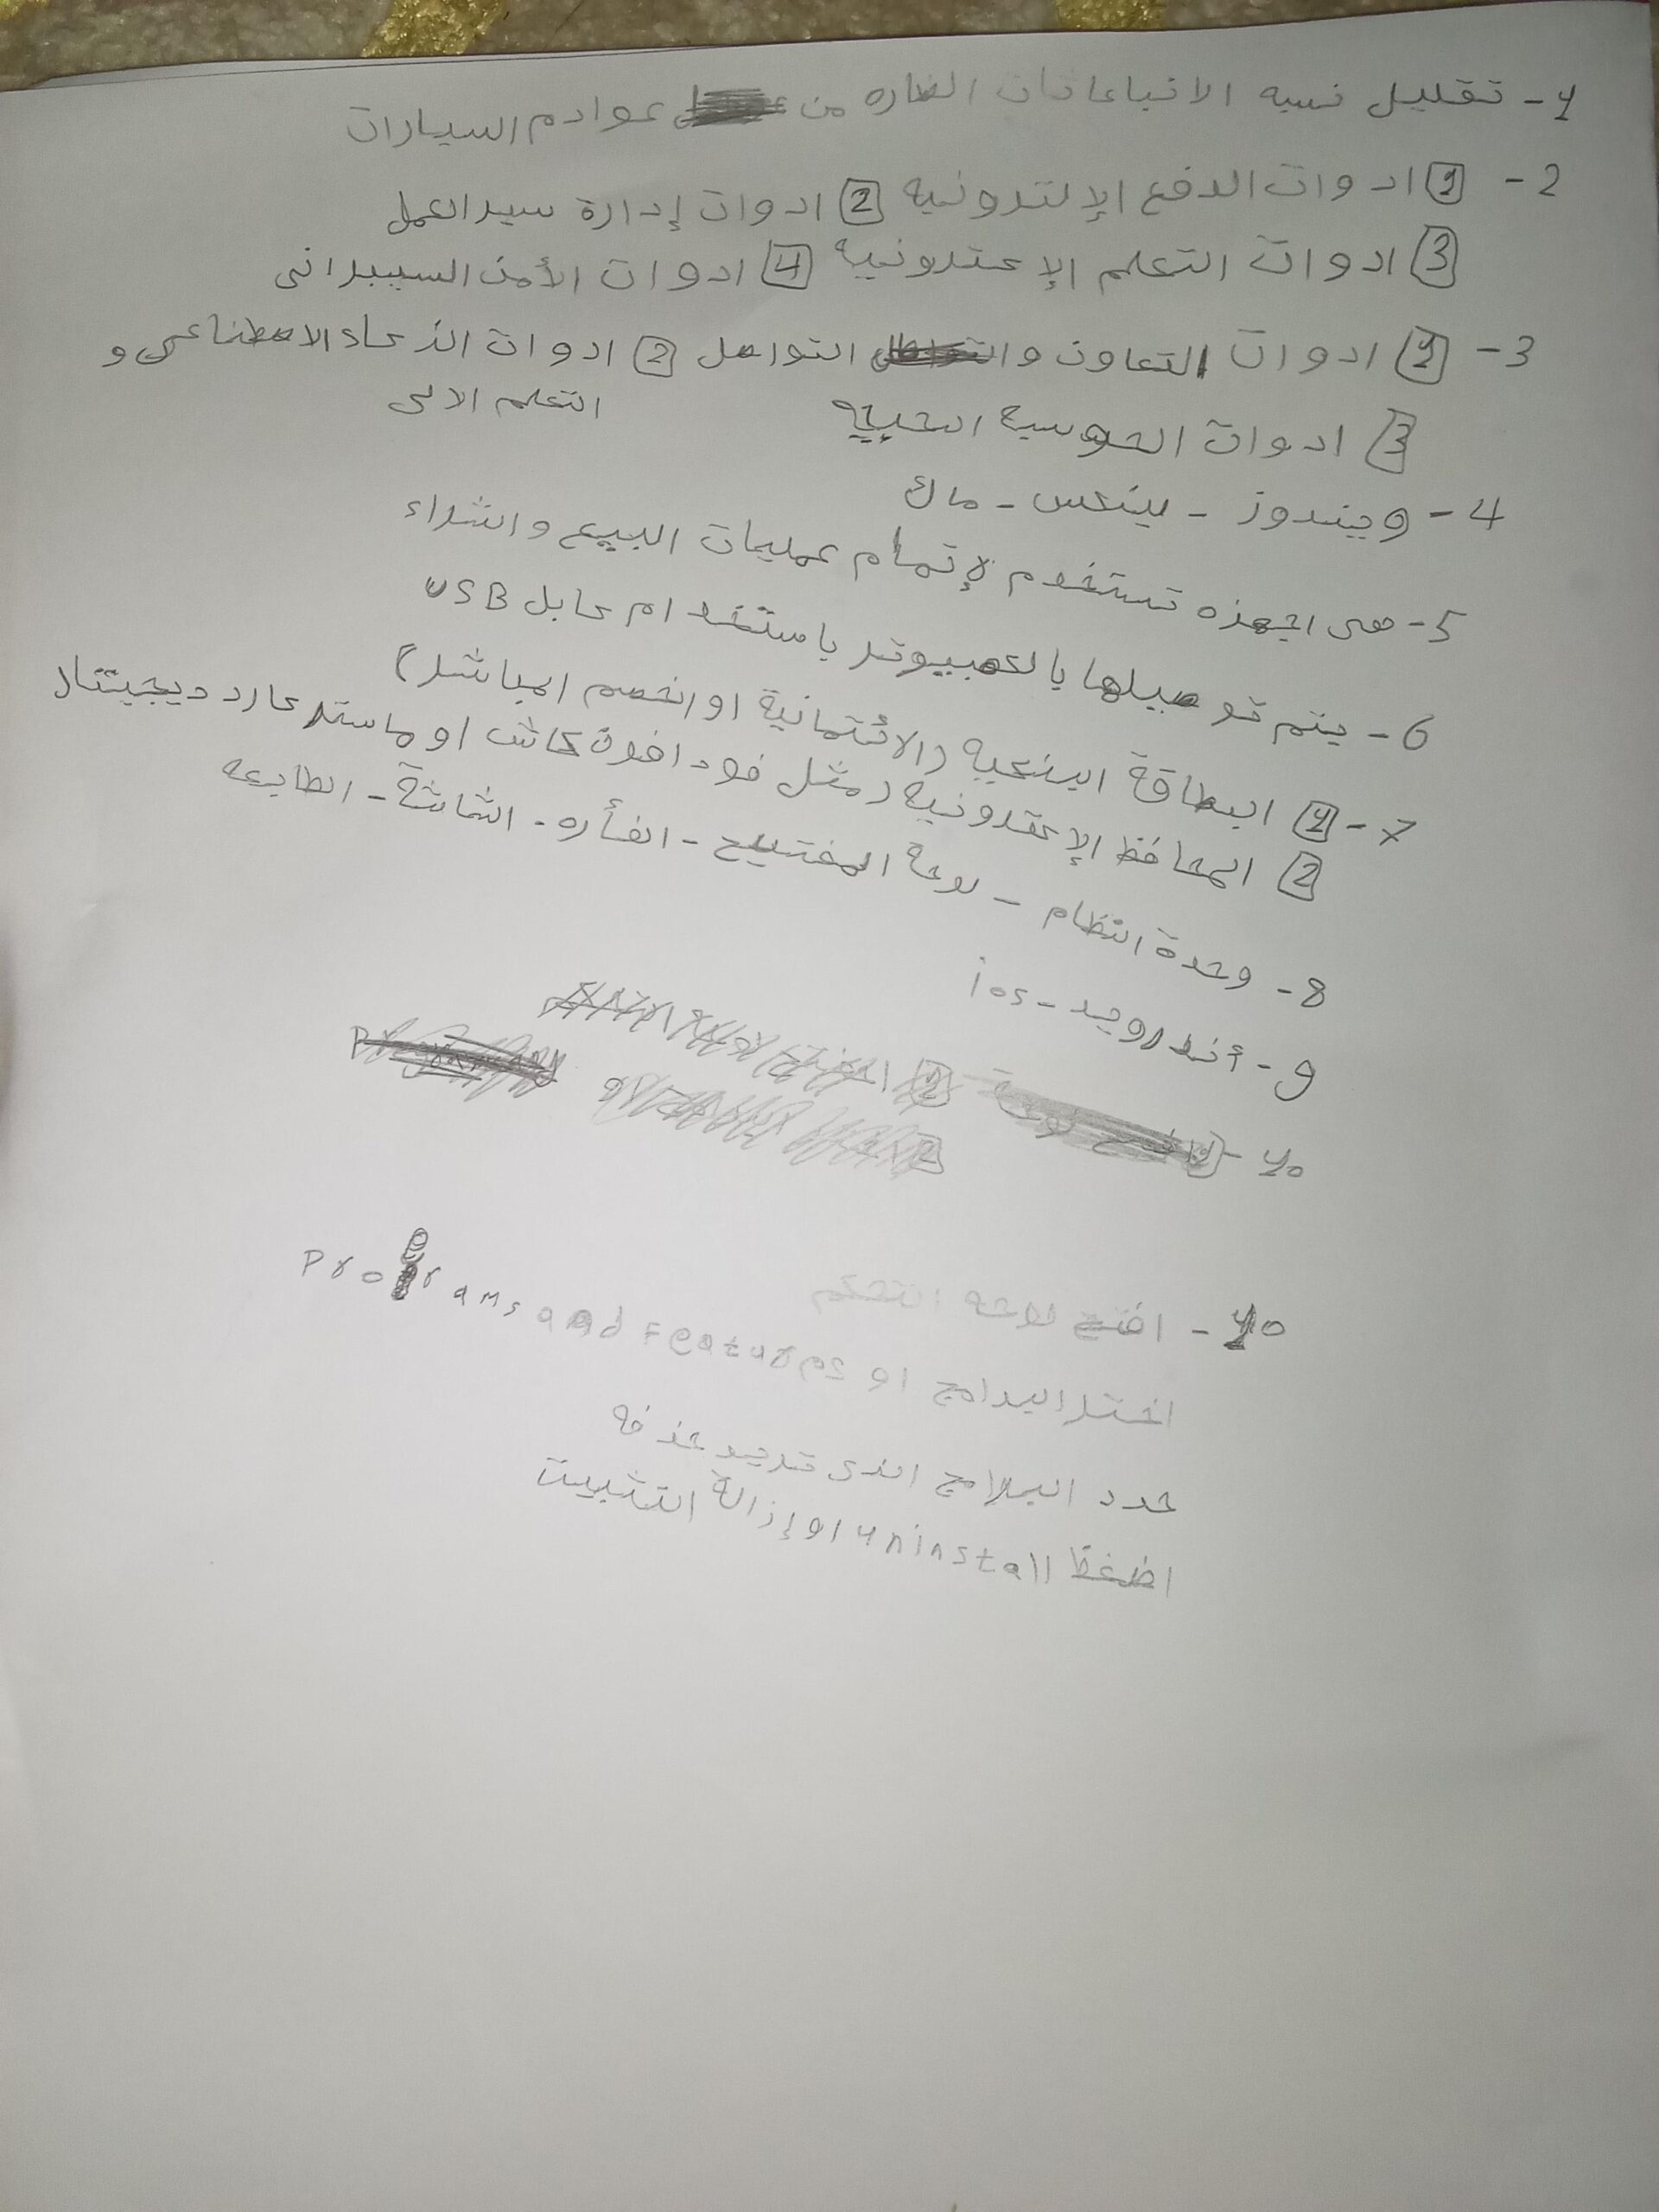 1- تقليل نسبه الانباعاثات الضاره من عوادم السيارات
2- 1 ادوات الدفع الإلتدرونيه 2 ادوات إدارة سير العمل
3 ادوات التعلم الإعتدرونيه 4 ادوات الأمن السيبراني
3- 1 ادوات التعاون والتواصل 2 ادوات الذكاء الاصطناعي و
التعلم الالي
3 ادوات الحوسبة السحبيه
4- ويندوز - لينكس - ماك
5- هى اجهزه تستخدم لإتمام عمليات البيع والشراء
6- يتم توصيلها بالكمبيوتر باستخدام كابل USB
7- 1 البطاقة البنكيه (الائتمانية او الخصم المباشر)
2 المحافظ الإكترونيه (مثل فودافون كاش او ماستر كارد ديجيتال
8- وحدة النظام - لوحة المفتيح - الفأره - الشاشة - الطابعه
9- أندرويد - ios
10-
10- افتح لوحه التحكم
اختر البرامج او Programs and Features
حدد البرامج الذى تريد حذفه
اضغط uninstall او إزالة التثبيت